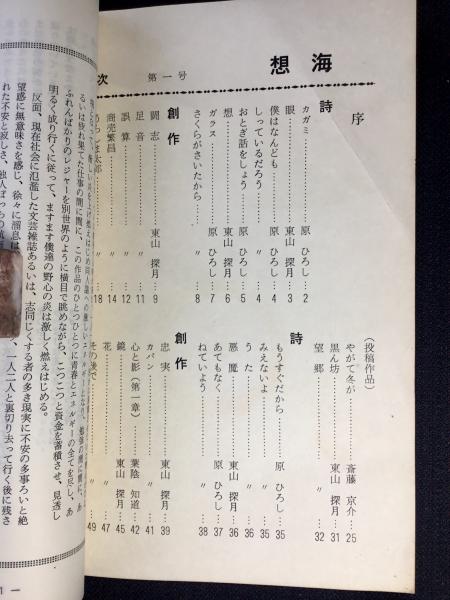 海想
第一号
次
序
詩
カガミ……原 ひろし…2
眼……東山 探月…3
僕はなんども……〃…4
しっているだろう……〃…4
おとぎ話をしよう……原 ひろし…5
想……東山 探月…6
ガラス……原 ひろし…7
さくらがさいたから……〃…8
創作
闘志……東山 探月…9
足音……〃…11
誤算……〃…12
商売繁昌……〃…14
太郎……〃…18
(投稿作品)
やがて冬が……斎藤 京介…25
黒ん坊……東山 探月…31
望郷……〃…32
詩
もうすぐだから……原 ひろし…35
みえないよ……〃…35
うた……〃…36
悪魔……東山 探月…36
あてもなく……原 ひろし…37
ねていよう……〃…38
創作
忠実……東山 探月…39
カバン……〃…41
心と影(第一章)……葉陰 知道…42
鏡……東山 探月…45
花……〃…47
その後で……〃…49
果てた仕事の間に間に、この作品のひとつひとつに青春とエネルギーの全てを尽し、あ
ふれんばかりのレジャーを別世界のように横目で眺めながら、こつこつと資金を蓄積させ、見透し
明るく成り行くに従って、ますます僕達の野心の炎は激しく燃えはじめる。
反面、現在社会に氾濫した文芸雑誌あるいは、志同じくする者の多き現実に不安の多事ろいと絶
望感に無意味さを感じ、徐々に溜息は
、一人二人と裏切り去って行く後に残さ
れた不安と寂しさ、独人ぼっちの
1